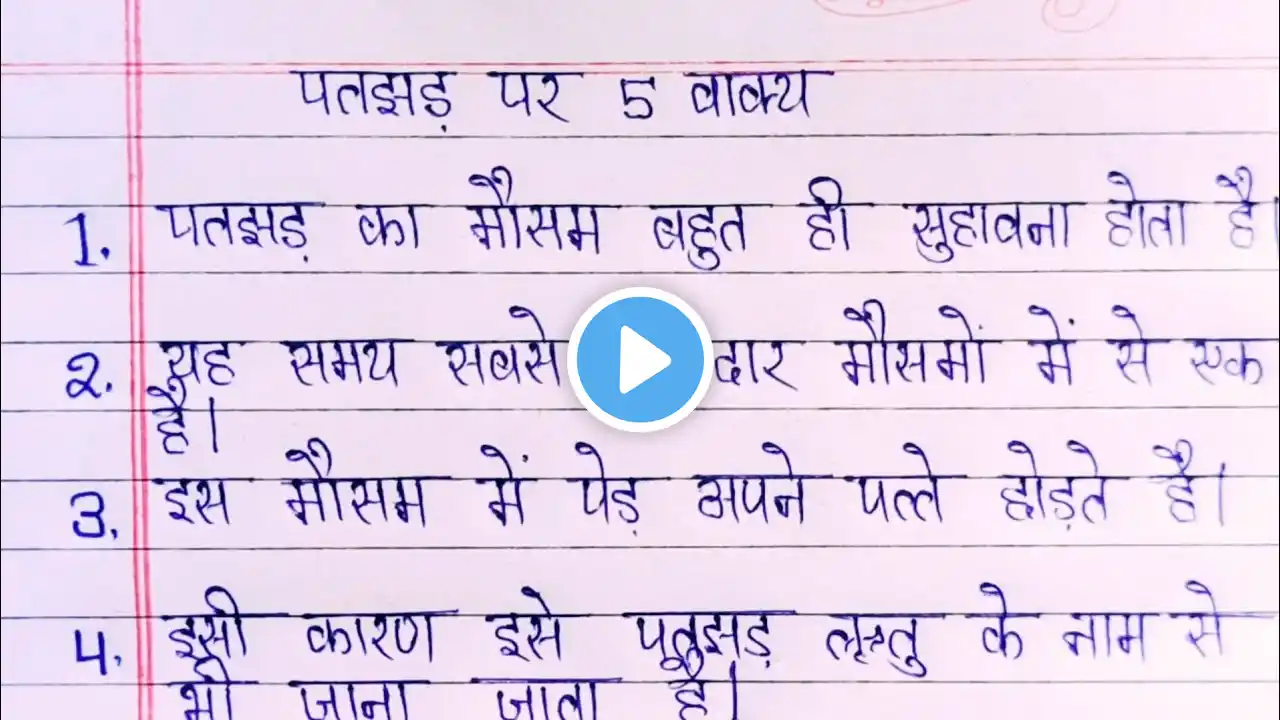 पतझड़ पर 5 वाक्य
1. पतझड़ का मौसम बहुत ही सुहावना होता है।
2. यह समय सबसे दार मौसमों में से एक
है।
3. इस मौसम में पेड़ अपने पत्ते छोड़ते है।
4. इसी कारण इसे पतझड़ ऋतु के नाम से
भी जाना जाता है।